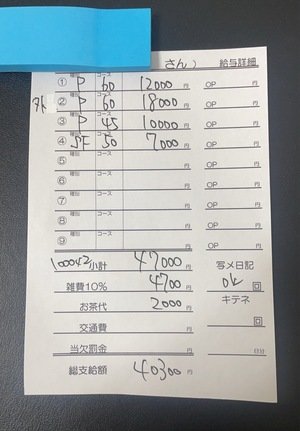 さん） 給与詳細
① 種別 P コース 60 12000円 OP 円
外 ② 種別 P コース 60 18000円 OP 円
③ 種別 P コース 45 10000円 OP 円
④ 種別 SF コース 50 7000円 OP 円
⑤ 種別 コース 円 OP 円
⑥ 種別 コース 円 OP 円
⑦ 種別 コース 円 OP 円
⑧ 種別 コース 円 OP 円
⑨ 種別 コース 円 OP 円
小計 47000円 写メ日記
雑費10% 4700円 ok 回
お茶代 2000円 キテネ
交通費 円 回
当欠罰金 円
総支給額 40300円